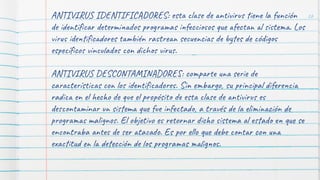 ANTIVIRUS IDENTIFICADORES: esta clase de antivirus tiene la función
de identificar determinados programas infecciosos que afectan al sistema. Los
virus identificadores también rastrean secuencias de bytes de códigos
específicos vinculados con dichos virus.
ANTIVIRUS DESCONTAMINADORES: comparte una serie de
características con los identificadores. Sin embargo, su principal diferencia
radica en el hecho de que el propósito de esta clase de antivirus es
descontaminar un sistema que fue infectado, a través de la eliminación de
programas malignos. El objetivo es retornar dicho sistema al estado en que se
encontraba antes de ser atacado. Es por ello que debe contar con una
exactitud en la detección de los programas malignos.